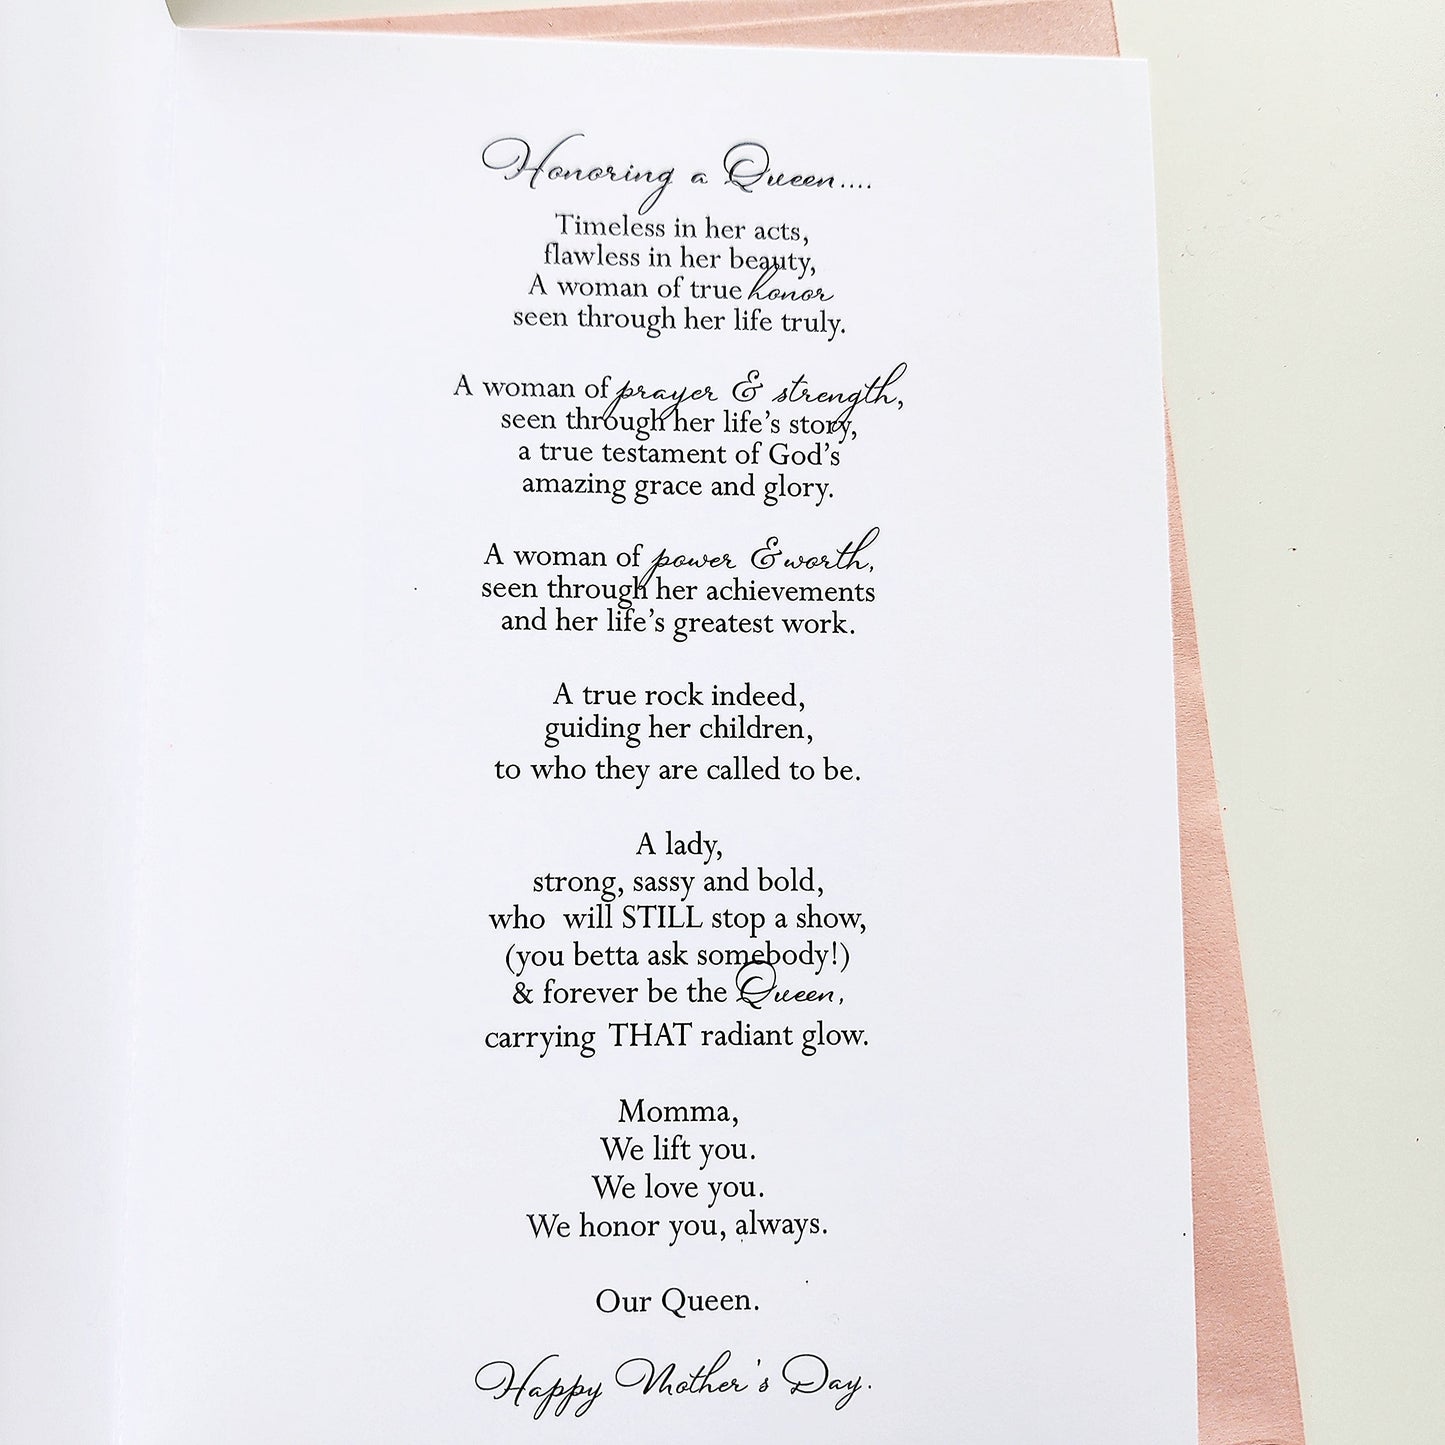 Honoring a Queen....
Timeless in her acts,
flawless in her beauty,
A woman of true honor
seen through her life truly.
A woman of prayer & strength,
seen through her life's story,
a true testament of God's
amazing grace and glory.
A woman of power & worth,
seen through her achievements
and her life's greatest work.
A true rock indeed,
guiding her children,
to who they are called to be.
A lady,
strong, sassy and bold,
who will STILL stop a show,
(you betta ask somebody!)
& forever be the Queen,
carrying THAT radiant glow.
Momma,
We lift you.
We love you.
We honor you, always.
Our Queen.
Happy Mother's Day.